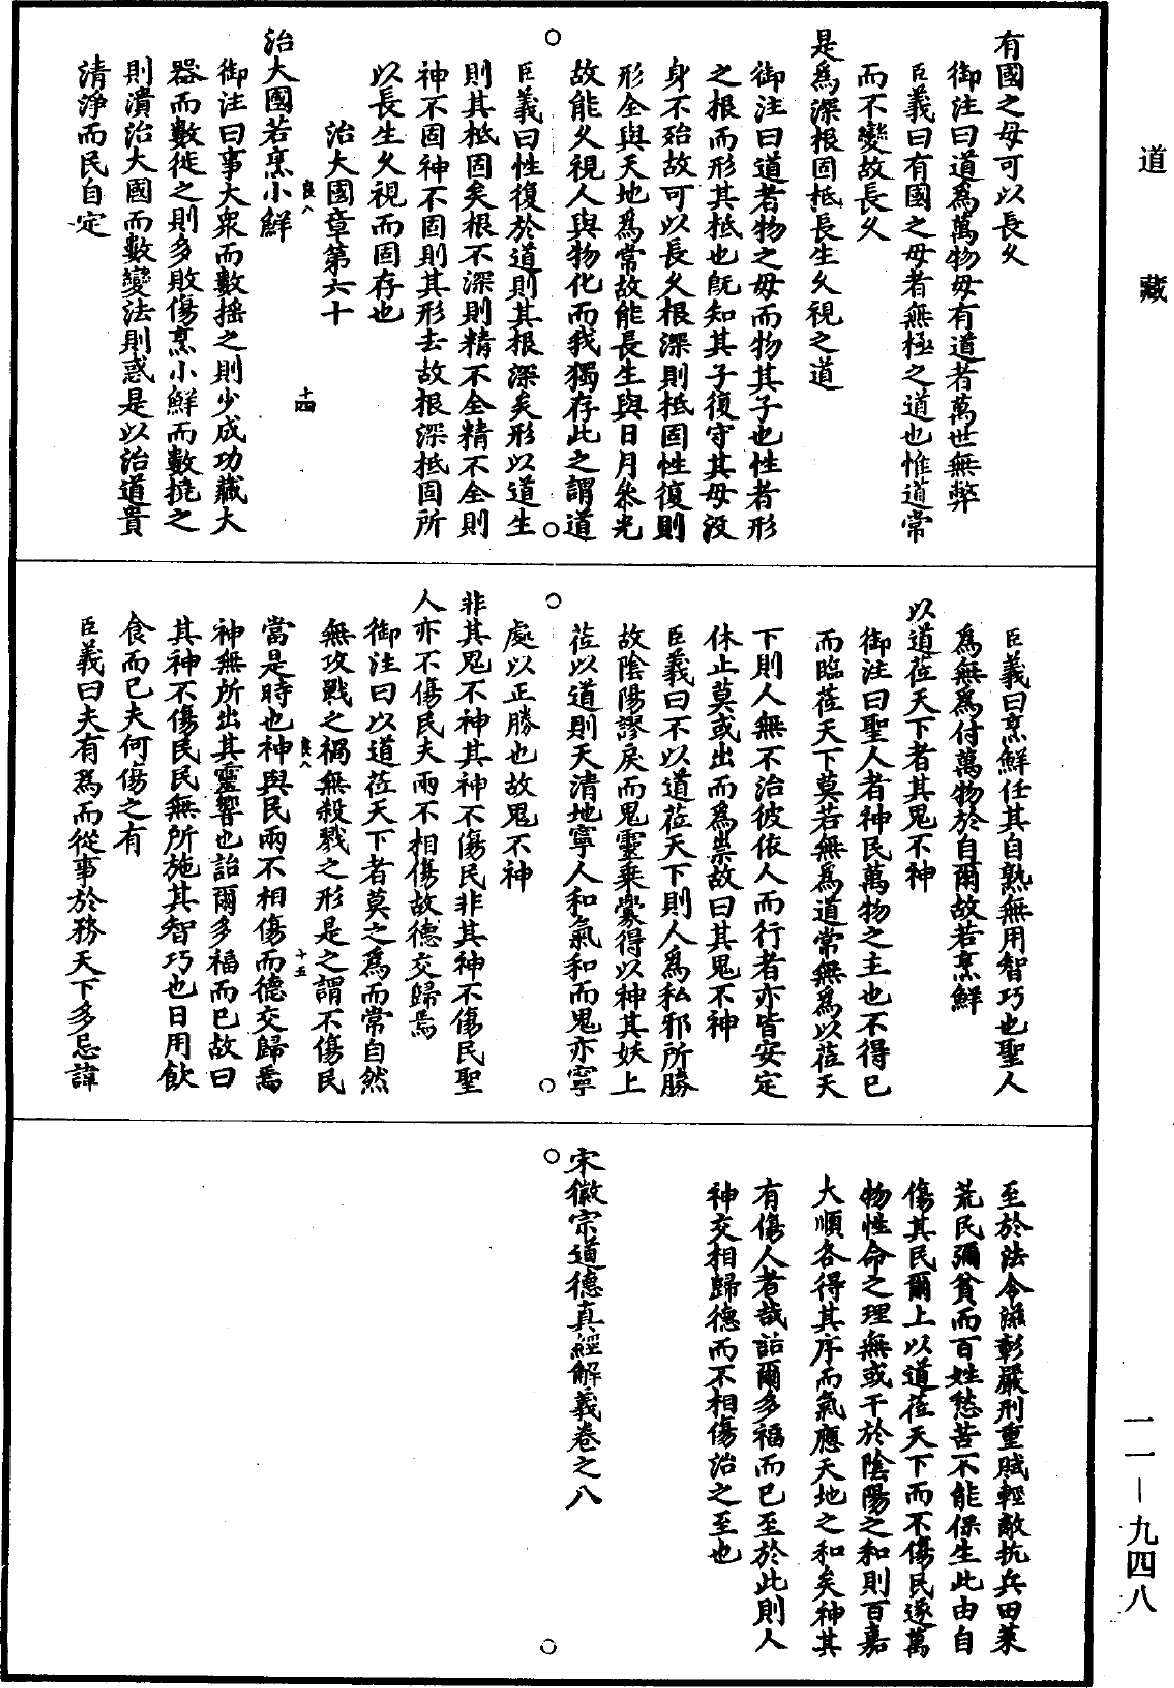 道藏
有國之母可以長久
御注曰道為萬物母有道者萬世無弊
臣義曰有國之母者無極之道也惟道常
而不變故長久
是為深根固柢長生久視之道
御注曰道者物之母而物其子也性者形
之根而形其柢也旣知其子復守其母沒
身不殆故可以長久根深則柢固性復則
形全與天地為常故能長生與日月叅光
故能久視人與物化而我獨存此之謂道
臣義曰性復於道則其根深矣形以道生
則其柢固矣根不深則精不全精不全則
神不固神不固則其形去故根深柢固所
以長生久視而固存也
治大國章第六十
良八
十四
治大國若烹小鮮
御注曰事大衆而數搖之則少成功藏大
器而數徙之則多敗傷烹小鮮而數撓之
則潰治大國而數變法則惑是以治道貴
清淨而民自定
臣義曰烹鮮任其自熟無用智巧也聖人
為無為付萬物於自爾故若烹鮮
以道莅天下者其鬼不神
御注曰聖人者神民萬物之主也不得已
而臨莅天下莫若無為道常無為以莅天
下則人無不治彼依人而行者亦皆安定
休止莫或出而為祟故曰其鬼不神
臣義曰不以道莅天下則人為私邪所勝
故陰陽謬戾而鬼靈乗釁得以神其妖上
莅以道則天清地寧人和氣和而鬼亦寧
處以正勝也故鬼不神
非其鬼不神其神不傷民非其神不傷民聖
人亦不傷民夫兩不相傷故德交歸焉
御注曰以道莅天下者莫之為而常自然
無攻戰之禍無殺戮之形是之謂不傷民
良八
十五
當是時也神與民兩不相傷而德交歸焉
神無所出其靈響也詒爾多福而已故曰
其神不傷民民無所施其智巧也日用飲
食而已夫何傷之有
臣義曰夫有為而從事於務天下多忌諱
至於法令滋彰嚴刑重賦輕敵抗兵田萊
荒民彌貧而百姓愁苦不能保生此由自
傷其民爾上以道莅天下而不傷民遂萬
物性命之理無或干於陰陽之和則百嘉
大順各得其序而氣應天地之和矣神其
有傷人者哉詒爾多福而已至於此則人
神交相歸德而不相傷治之至也
宋徽宗道德真經解義卷之八
一一-九四八